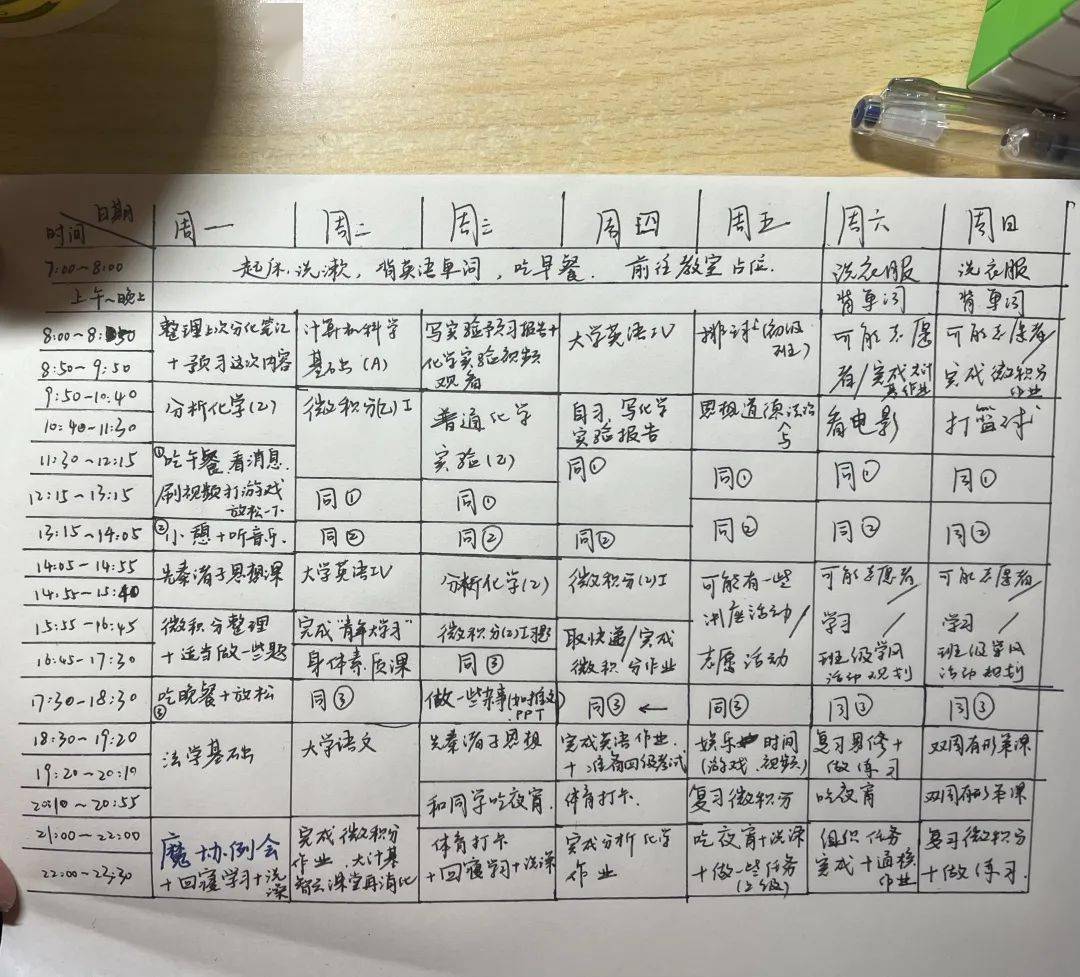 日期
时间
周一 周二 周三 周四 周五 周六 周日
7:00~8:00 起床.洗漱,背英语单词,吃早餐. 前往教室占位. 洗衣服 洗衣服
上午~晚上 背单词 背单词
8:00~8:50 整理上次分化笔记 计算机科学 写实验预习报告+ 大学英语IV 排球(初级 可能志愿 可能志愿者/
8:50~9:50 +预习这次内容 基础(A) 化学实验视频 班) 者/完成大计 完成微积分
观看 基作业 作业
9:50-10:40 分析化学(2) 微积分(2)I 普通化学 自习,写化学 思想道德与法治 看电影 打篮球
10:40-11:30 实验报告
11:30~12:15 ①吃午餐,看消息. 实验(2) 同① 同① 同① 同①
12:15~13:15 刷视频打游戏 同① 同①
放松一下
13:15~14:05 ②小憩+听音乐. 同② 同② 同② 同② 同② 同②
14:05~14:55 先秦诸子思想课 大学英语IV 分析化学(2) 微积分(2)I 可能有一些 可能志愿者/ 可能志愿者/
14:55-15:40 讲座活动/
15:55-16:45 微积分整理 完成"青年大学习" 微积分(2)I 取快递/完成 学习/ 学习/
16:45-17:30 +适当做一些题 身体素质课 同③ 微积分作业 志愿活动 班级学风 班级学风
活动规划 活动规划
17:30-18:30 ③吃晚餐+放松 同③ 做一些杂事(如推文 同③ ← 同③ 同③ 同③
.PPT
18:30~19:20 法学基础 大学语文 先秦诸子思想 完成英语作业. 娱乐时间 复习男修+ 双周有形策课
19:20~20:10 +准备四级考试 (游戏.视频) 做练习
20:10~20:55 和同学吃夜宵. 体育打卡. 复习微积分 吃夜宵 双周有形策课
21:00~22:00 魔协例会 完成微积分 体育打卡 完成分析化学 吃夜宵+洗澡 组织任务 复习微积分
22:00~23:30 +回寝学习+洗澡 作业.大计基 +回寝学习+洗澡 作业 +做一些任务 完成+ +做练习.
课堂再消化 (上级) 作业